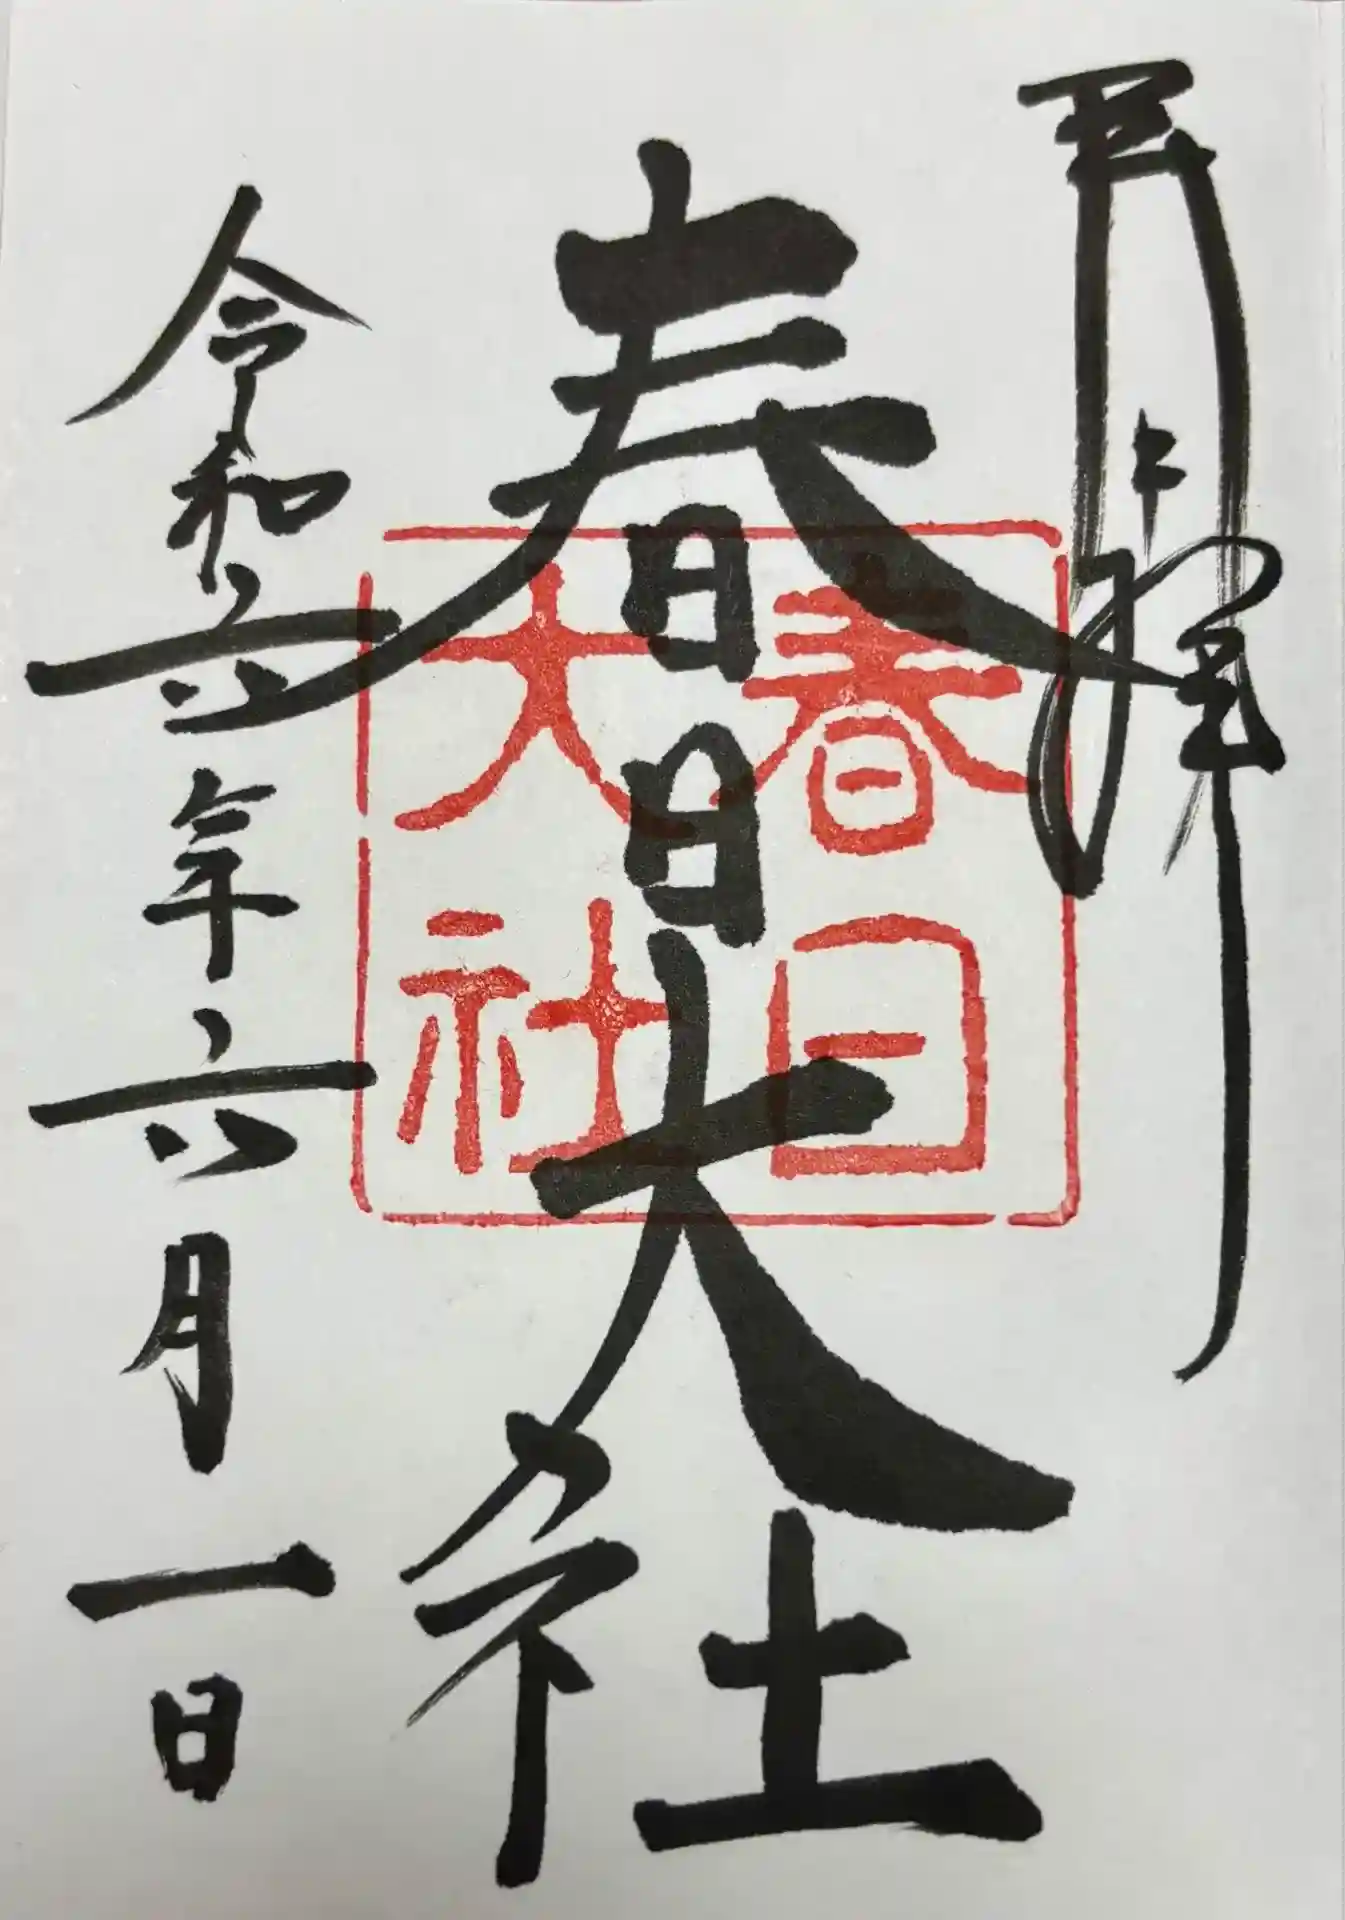 春日大社
令和六年六月一日
春日
大社